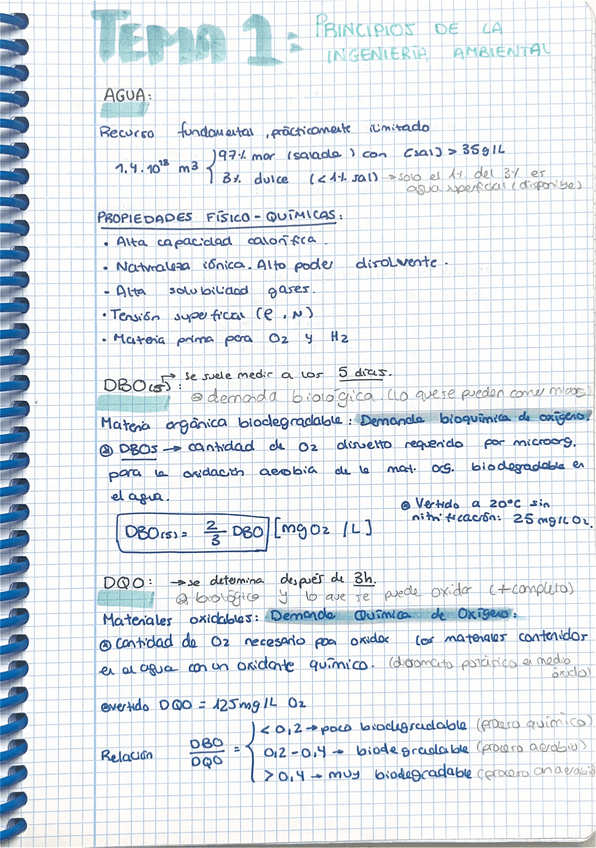 TEMA 1: PRINCIPIOS DE LA
INGENIERÍA AMBIENTAL
AGUA:
Recurso fundamental, prácticamente ilimitado
1,4·10¹⁸ m3 { 97% mar (salada) con [sal] > 35g/L
3% dulce (<1% sal) → solo el 1% del 3% es
agua superficial (disponible)
PROPIEDADES FÍSICO-QUÍMICAS:
· Alta capacidad calorífica.
· Naturaleza iónica. Alto poder disolvente.
- Alta solubilidad gases.
· Tensión superficial (e, N)
· Materia prima para O2 y H2
DBO(5): → se suele medir a los 5 días.
demanda biológica (lo que se pueden comer microg)
Materia orgánica biodegradable: Demanda bioquímica de oxígeno.
DBO5 → cantidad de O2 disuelto requerido por microorg.
para la oxidación aerobia de la mat. org. biodegradable en
el agua.
DBO(5) = 2/3 DBO [mg O2 /L]
Vertido a 20°C sin
nitrificación: 25 mg/L O2.
DQO: → se determina después de 3h.
biológico y lo que se puede oxidar (+ completo)
Materiales oxidables: Demanda Química de Oxígeno:
cantidad de O2 necesario para oxidar los materiales contenidos
en el agua con un oxidante químico. (dicromato potásico en medio
ácido)
vertido DQO = 125mg/L O2
Relación DBO/DQO = { < 0,2 → poco biodegradable (proceso químico)
0,2-0,4 → biodegradable (proceso aerobio)
> 0,4 → muy biodegradable (proceso anaerobio